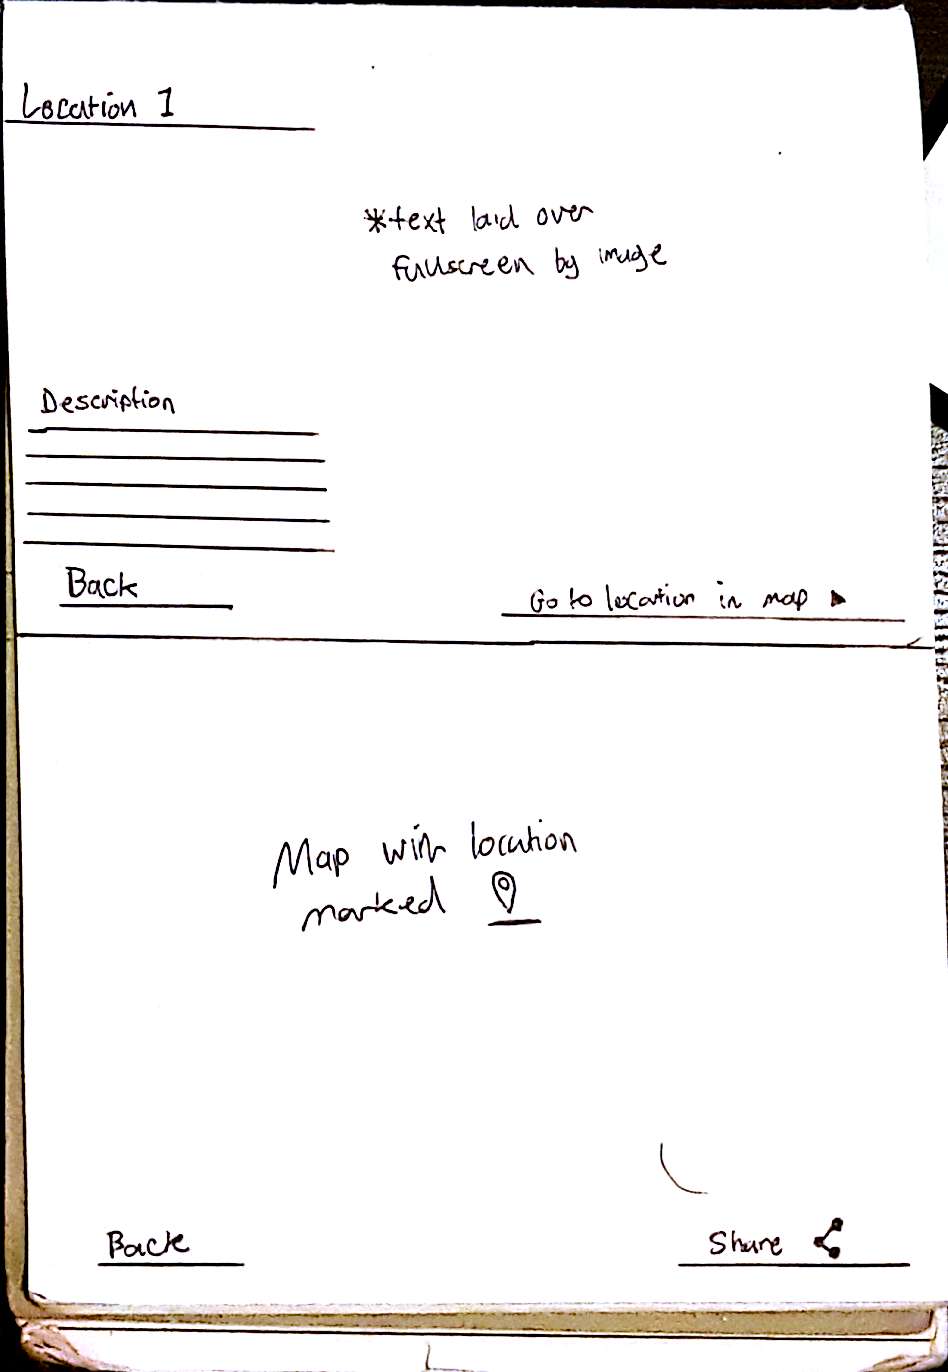 Location 1
*text laid over
fullscreen by image
Description
Back
Go to location in map
Map with location
marked
Back
Share